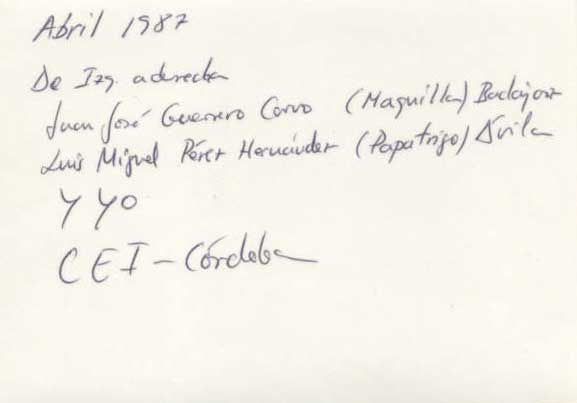 Abril 1987
De Izq. a derecha
Juan José Guerrero Corvo (Maquilla) Badajoz
Luis Miguel Pérez Hernández (Papatrigo) Ávila
Y YO
CEI - Córdoba